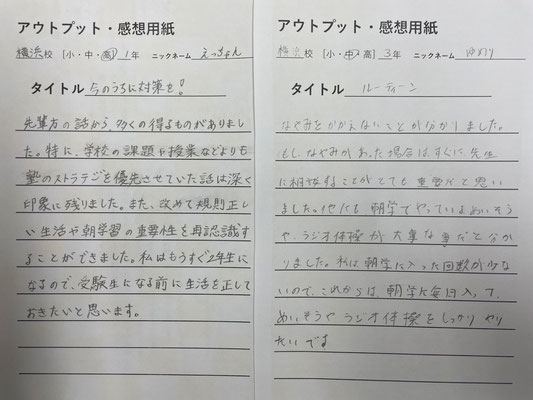 アウトプット・感想用紙
横浜校 [小・中・高] 1年 ニックネーム えっちゃん
タイトル 今のうちに対策を!
先輩方の話から、多くの得るものがありまし
た。特に、学校の課題や授業などよりも
塾のストラテジを優先させていた話は深く
印象に残りました。また、改めて規則正し
い生活や朝学習の重要性を再認識す
ることができました。私はもうすぐ2年生に
なるので、受験生になる前に生活を正して
おきたいと思います。
アウトプット・感想用紙
横浜校 [小・中・高] 3年 ニックネーム ゆめり
タイトル ルーティーン
なやみをかかえないことが分かりました。
もし、なやみがあった場合は、すぐに、先生
に相談することがとても重要だと思い
ました。他にも、朝学でやっているめいそう
や、ラジオ体操が大事な事だと分か
りました。私は、朝学に入った回数が少な
いので、これからは、朝学に毎日入って、
めいそうやラジオ体操をしっかりやり
たいです